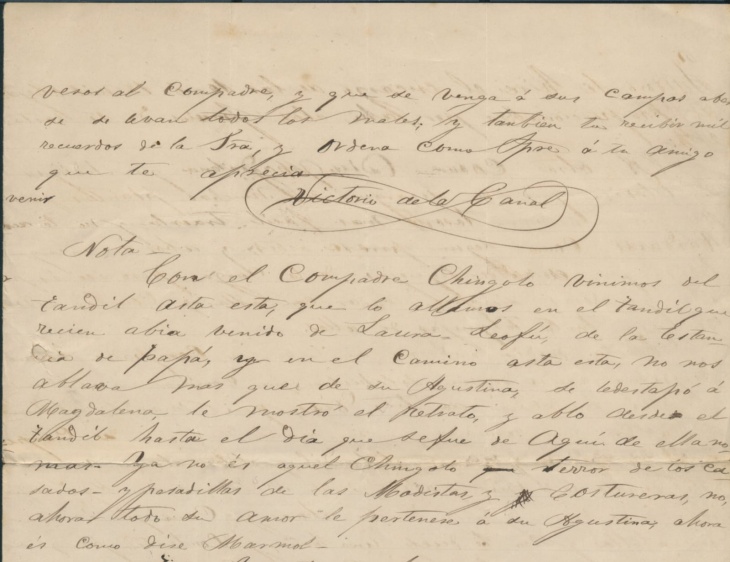 vesos al Compadre, y que se venga á sus campos aber
se se lavan todos los males, y tanbien tu recibir mil
recuerdos de la Sra, y ordena como Spre á tu amigo
que te aprecia
Victorio de la Canal
venir
Nota—
Con el Compadre Chingolo vinimos del
tandil asta esta, que lo allamos en el tandil que
recien abia venido de Laura-Leofú, de la Estan
cia de papá, y en el camino asta esta, no nos
ablava mas que de su Agustina, se ledestapó á
Magdalena, le mostró el Retrato, y abló desde el
tandil hasta el Dia que sefue de Aqui de ella no
mas— Ya no és aquel Chingolo terror de los ca
sados— y pesadillas de las Modistas, y Costureras, no,
ahora todo su amor le pertenese á su Agustina, ahora
és como dise Marmol—